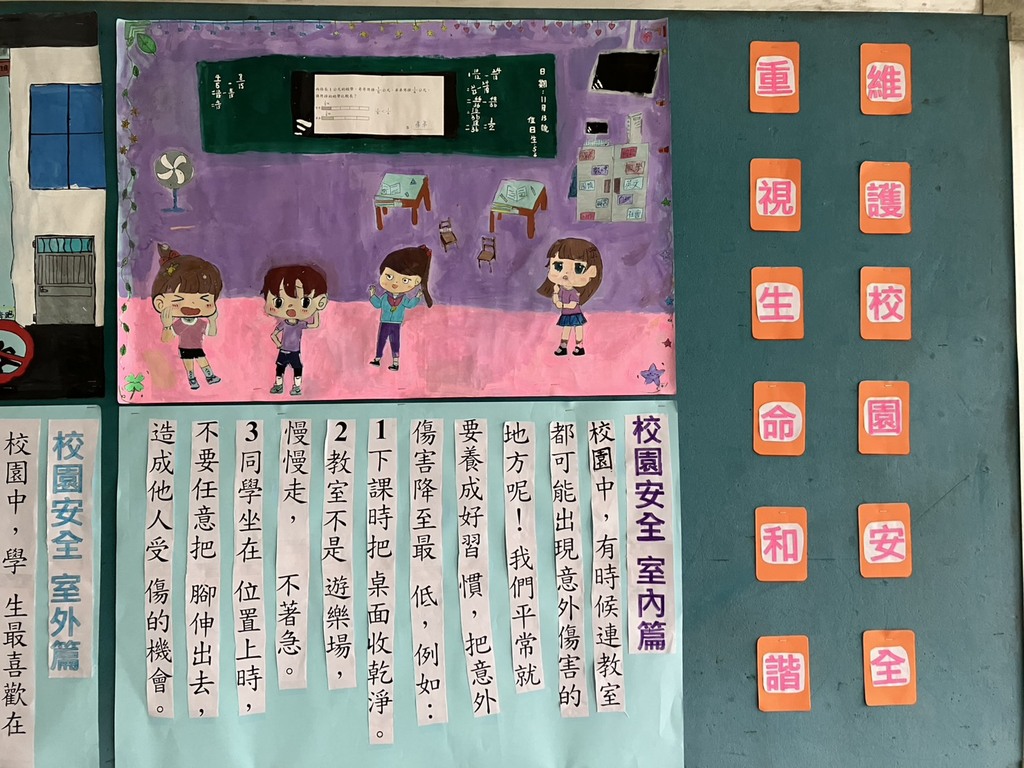 維護校園安全
重視生命和諧
日期:11月15號
值日生:5
校園安全 室內篇
校園中，有時候連教室
都可能出現意外傷害的
地方呢！我們平常就
要養成好習慣，把意外
傷害降至最低，例如：
1下課時把桌面收乾淨。
2教室不是遊樂場，
慢慢走，不著急。
3同學坐在位置上時，
不要任意把腳伸出去，
造成他人受傷的機會。
校園安全 室外篇
校園中，學生最喜歡在